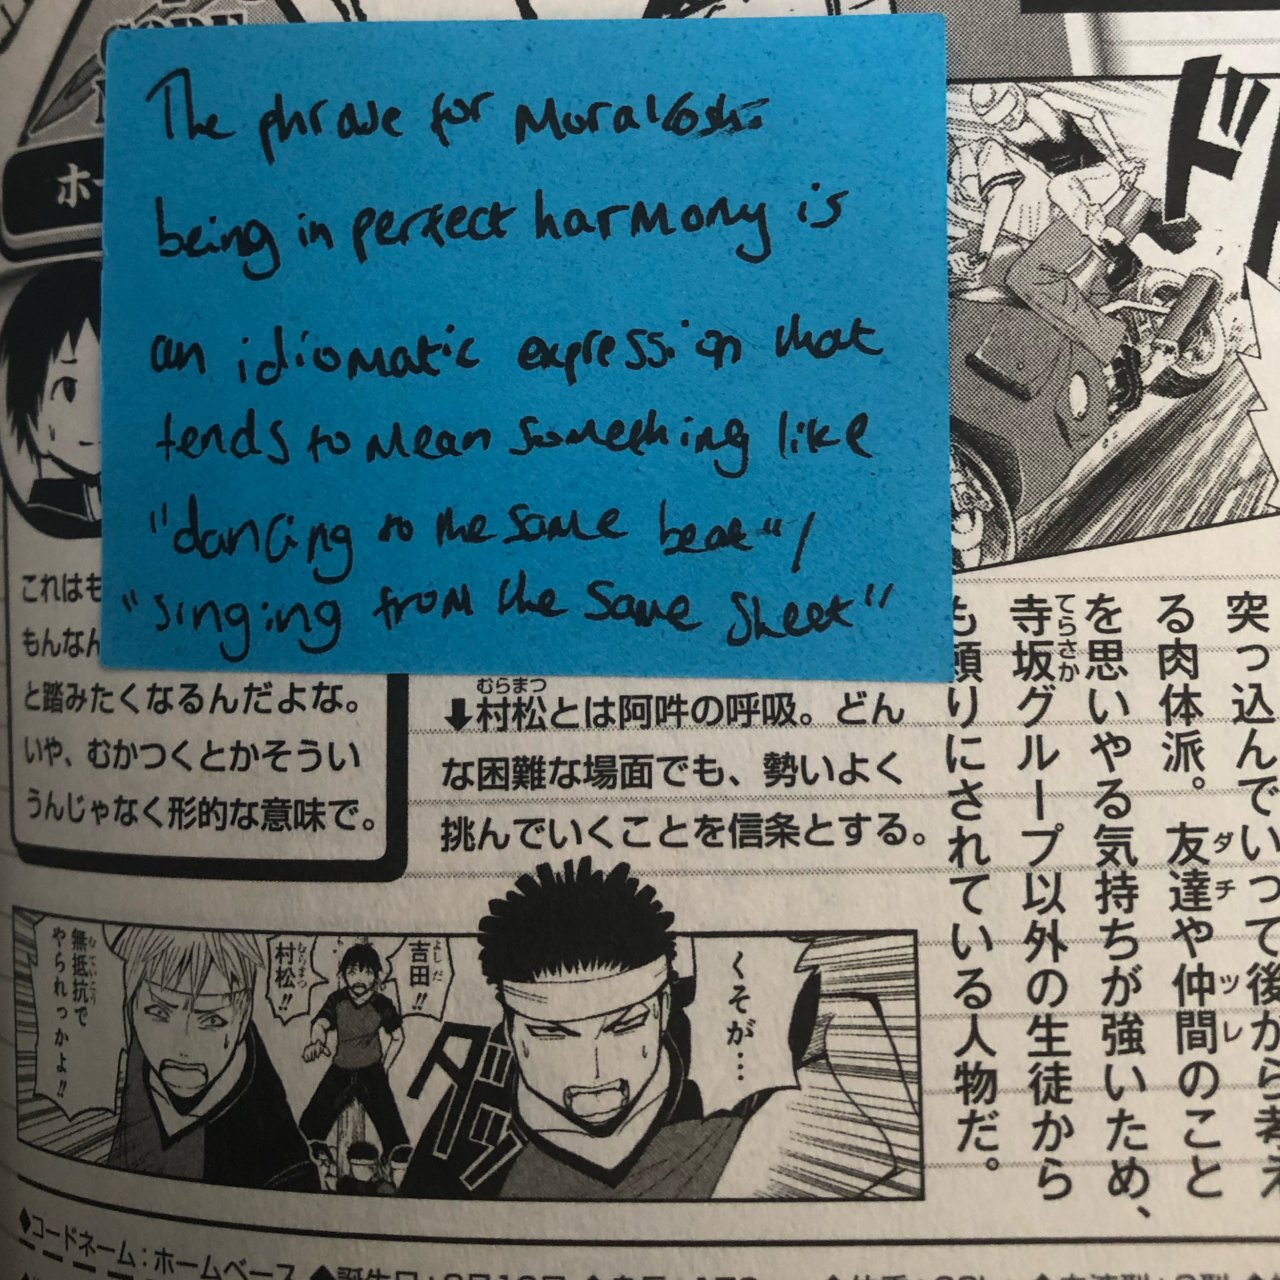 The phrase for
being in perfect harmony is
an idiomatic expression that
tends to mean something like
"dancing to the same beat"/
"singing from the same sheet"
ホ
ド
突っ込んでいって後から考え
る肉体派。友達や仲間のこと
ダチ
ツレ
を思いやる気持ちが強いため、
寺坂グループ以外の生徒から
てらさか
も頼りにされている人物だ。
これはも
もんなん
と踏みたくなるんだよな。
いや、むかつくとかそうい
うんじゃなく形的な意味で。
むらまつ
⬇村松とは阿吽の呼吸。どん
な困難な場面でも、勢いよく
挑んでいくことを信条とする。
くそが…
吉田!!
よしだ
村松!!
むらまつ
無抵抗で
むていこう
やられっかよ!!
ダッ
◆コードネーム:ホームベース